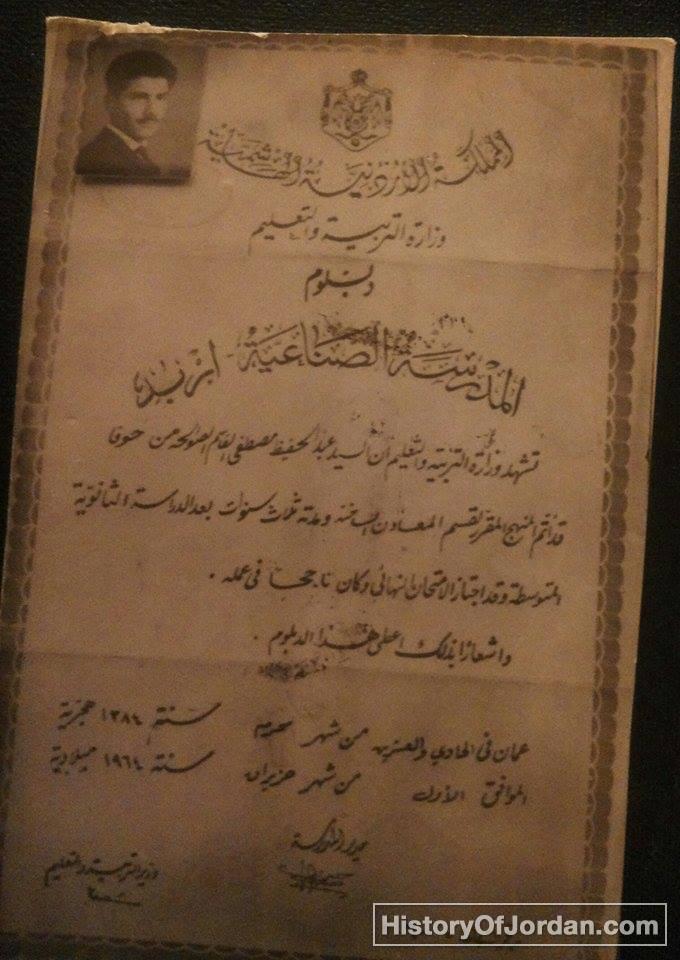 المملكة الأردنية الهاشمية
وزارة التربية والتعليم
دبلوم
المدرسة الصناعية - اربد
تشهد وزارة التربية والتعليم ان السيد عبد الحفيظ مصطفى القاسم الصوالحه من حوفا
قد أتم المنهج المقرر لقسم المعادن الساخنة ومدته ثلاث سنوات بعد الدراسة الثانوية
المتوسطة وقد اجتاز الامتحان النهائي وكان ناجحاً في عمله .
واشعاراً بذلك اعطي هذا الدبلوم .
عمان في الحادي والعشرين من شهر محرم سنة ١٣٨٤ هجرية
الموافق الأول من شهر حزيران سنة ١٩٦٤ ميلادية
مدير المدرسة
وزير التربية والتعليم
HistoryOfJordan.com